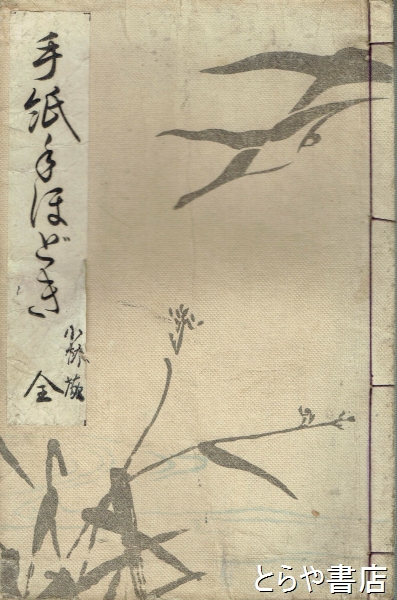 手紙手ほどき
全
小林蔵
とらや書店